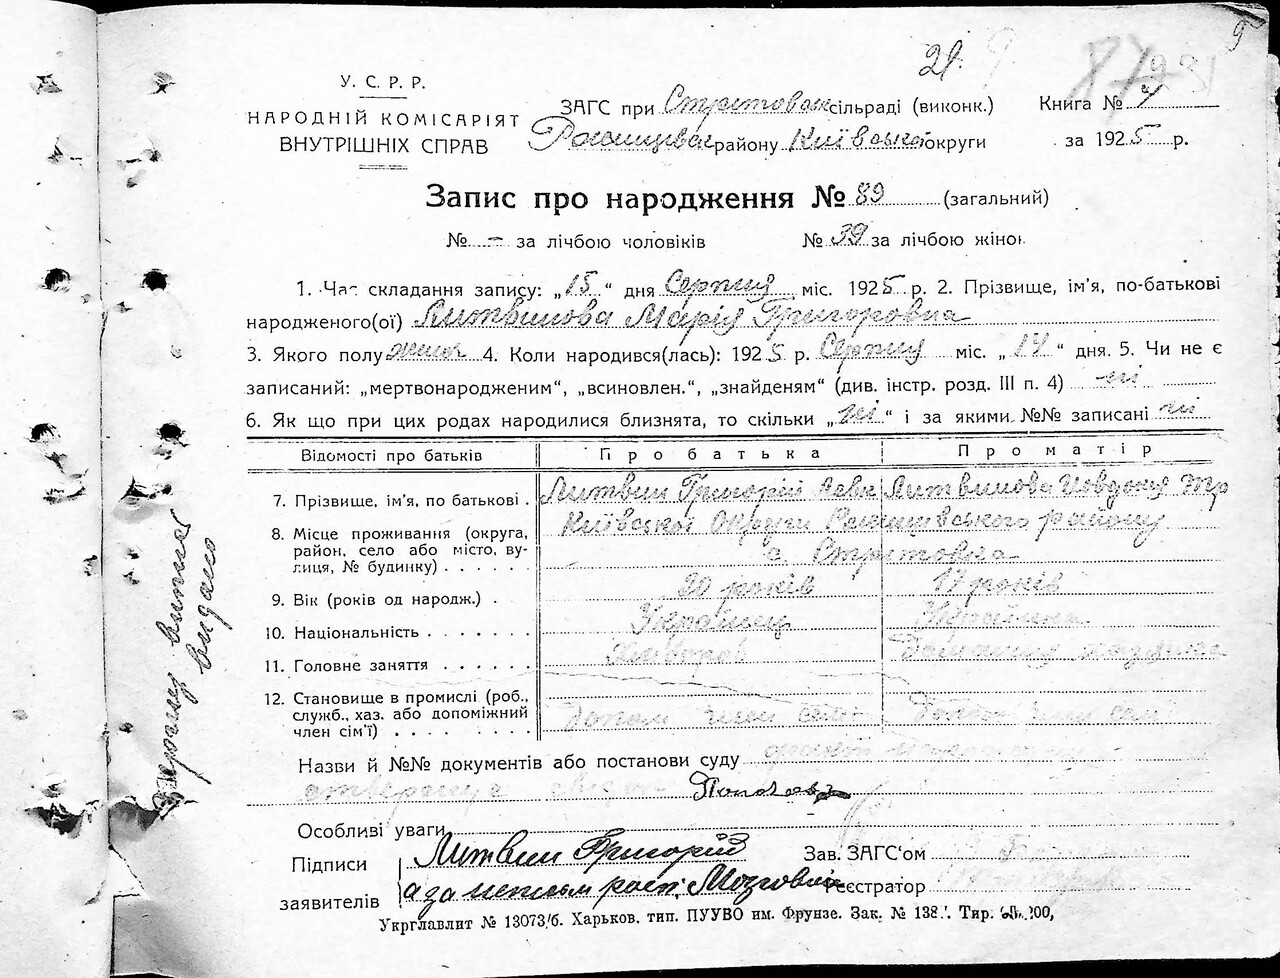 21.
У. С. Р. Р.
НАРОДНІЙ КОМІСАРІЯТ
ВНУТРІШНІХ СПРАВ
ЗАГС при Стрітовск сільраді (виконк.)
району Київської округи
Книга № 7
за 1925 р.
Запис про народження № 89 (загальний)
№ – за лічбою чоловіків № 39 за лічбою жінок
1. Час складання запису: „15" дня Серпня міс. 1925 р. 2. Прізвище, ім'я, по-батькові
народженого(ої) Литвинова Марія Григоровна
3. Якого полу жіноч 4. Коли народився(лась): 1925 р. Серпня міс. „14" дня. 5. Чи не є
записаний: „мертвонародженим", „всиновлен.", „знайденям" (див. інстр. розд. III п. 4) ні
6. Як що при цих родах народилися близнята, то скільки „ні" і за якими №№ записані ні
Відомості про батьків Про батька Про матір
7. Прізвище, ім'я, по батькові . Литвин Григорій Литвинова Повдокія
8. Місце проживання (округа, Київської Округи району
район, село або місто, ву- с Стрітовка
лиця, № будинку) . . . . .
9. Вік (років од народж.) . 20 років 17 років
10. Національність . . . . . . . Українец Українка
11. Головне заняття . . . . . . Хлібороб Домашня
12. Становище в промислі (роб.,
служб., хаз. або допоміжний Допом член сем
член сім'ї) . . . . . . . . .
Назви й №№ документів або постанови суду
Особливі уваги
Підписи Литвин Григорій Зав. ЗАГС'ом
заявителів а за Мозговий Реєстратор
Укрглавлит № 13073/б. Харьков. тип. ПУУВО им. Фрунзе. Зак. №
витяг
видано